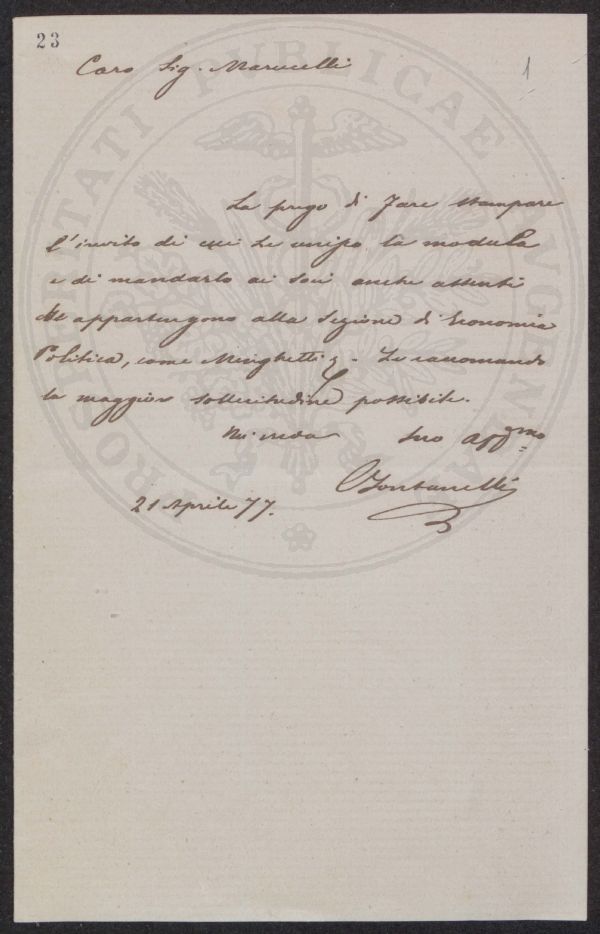 23
1
Caro Sig. Marucelli
La prego di fare stampare
l'invito di cui Le unisco la modula
e di mandarlo ai soci anche assenti
che appartengono alla Sezione di Economia
Politica, come Minghetti &. Le raccomando
la maggior sollecitudine possibile.
Mi creda Suo aff.mo
CFontanelli
21 Aprile 77.
PROSPERITATI PUBLICAE AUGENDAE